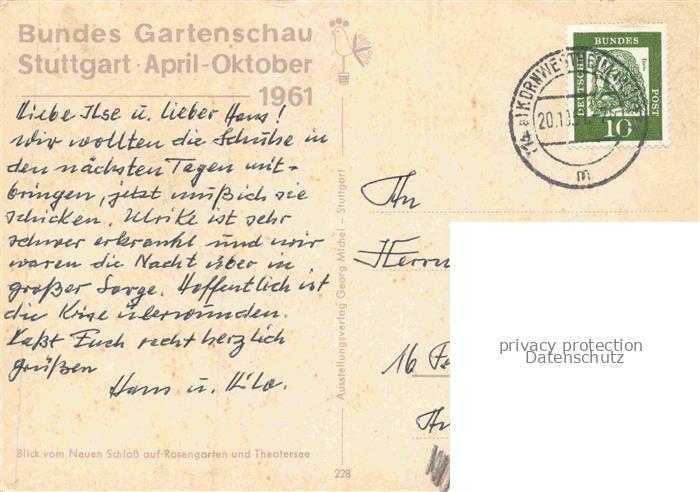 Bundes Gartenschau
Stuttgart · April-Oktober
1961
Liebe Ilse u. lieber Hans!
Wir wollten die Schuhe in
den nächsten Tagen mit-
bringen, jetzt muß ich sie
schicken. Ulrike ist sehr
schwer erkrankt und wir
waren die Nacht über in
großer Sorge. Hoffentlich ist
die Krise überwunden.
Laßt Euch recht herzlich
grüßen
Hans u. Hilo.
Blick vom Neuen Schloß auf Rosengarten und Theatersee
Ausstellungsverlag Georg Michel – Stuttgart
228
DEUTSCHE
BUNDES
POST
10
(14a) KORNWESTHEIM
20.10.
m
An
Herrn
16
privacy protection
Datenschutz